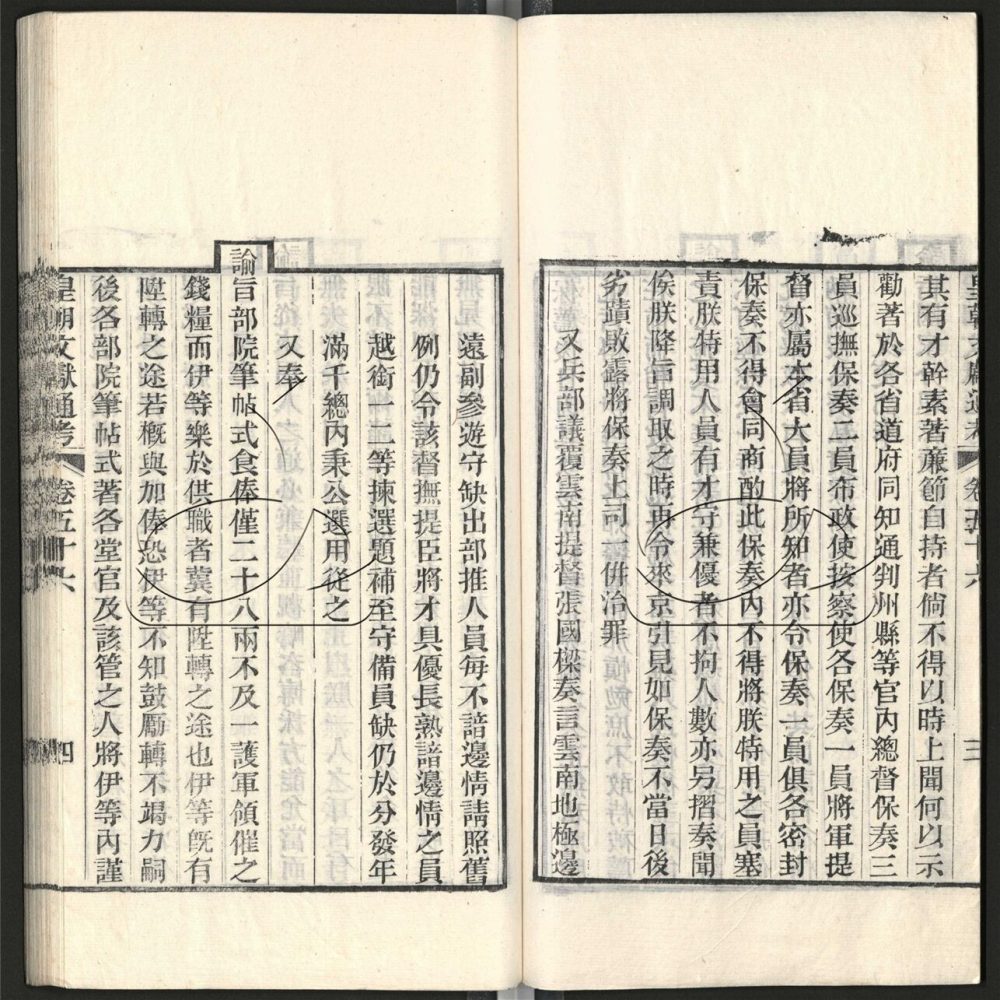 皇朝文獻通考 卷五十六 三
其有才幹素著蔗節自持者倘不得以時上聞何以示
勸著於各省道府同知通判州縣等官內總督保奏三
員巡撫保奏二員布政使按察使各保奏一員將軍提
督亦屬本省大員將所知者亦令保奏一員俱各密封
保奏不得會同商酌此保奏內不得將朕特用之員塞
責朕特用人員有才守兼優者不拘人數亦另摺奏聞
俟朕降旨調取之時再令來京引見如保奏不當日後
劣蹟敗露將保奏上司一併治罪
又兵部議覆雲南提督張國樑奏言雲南地極邊
遠副參遊守缺出部推人員每不諳邊情請照舊
例仍令該督撫提臣將才具優長熟諳邊情之員
越銜一二等揀選題補至守備員缺仍於分發年
滿千總內秉公選用從之
又奉
諭旨部院筆帖式食俸僅二十八兩不及一護軍領催之
錢糧而伊等樂於供職者冀有陞轉之途也伊等旣有
陞轉之途若槪與加俸恐伊等不知鼓勵轉不竭力嗣
後各部院筆帖式著各堂官及該管之人將伊等內謹
皇朝文獻通考 卷五十六 四